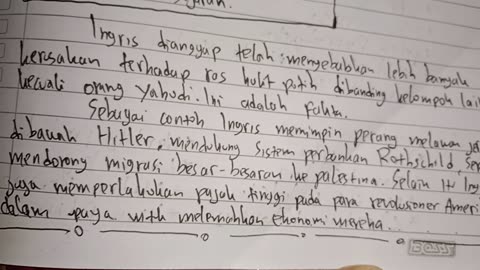 Ingris dianggap telah menyebabkan lebih banyak
kerusakan terhadap ras kulit putih dibanding kelompok lai
kecuali orang Yahudi. Ini adalah fakta.
Sebagai contoh Ingris memimpin perang melawan
dibawah Hitler, mendukung sistem perbankan Rothschild,
mendorong migrasi besar-besaran ke palestina. Selain
juga memperlakukan pajak tinggi pada para revolusioner Ameri
dalam upaya untk melemahkan ekonomi mereka.